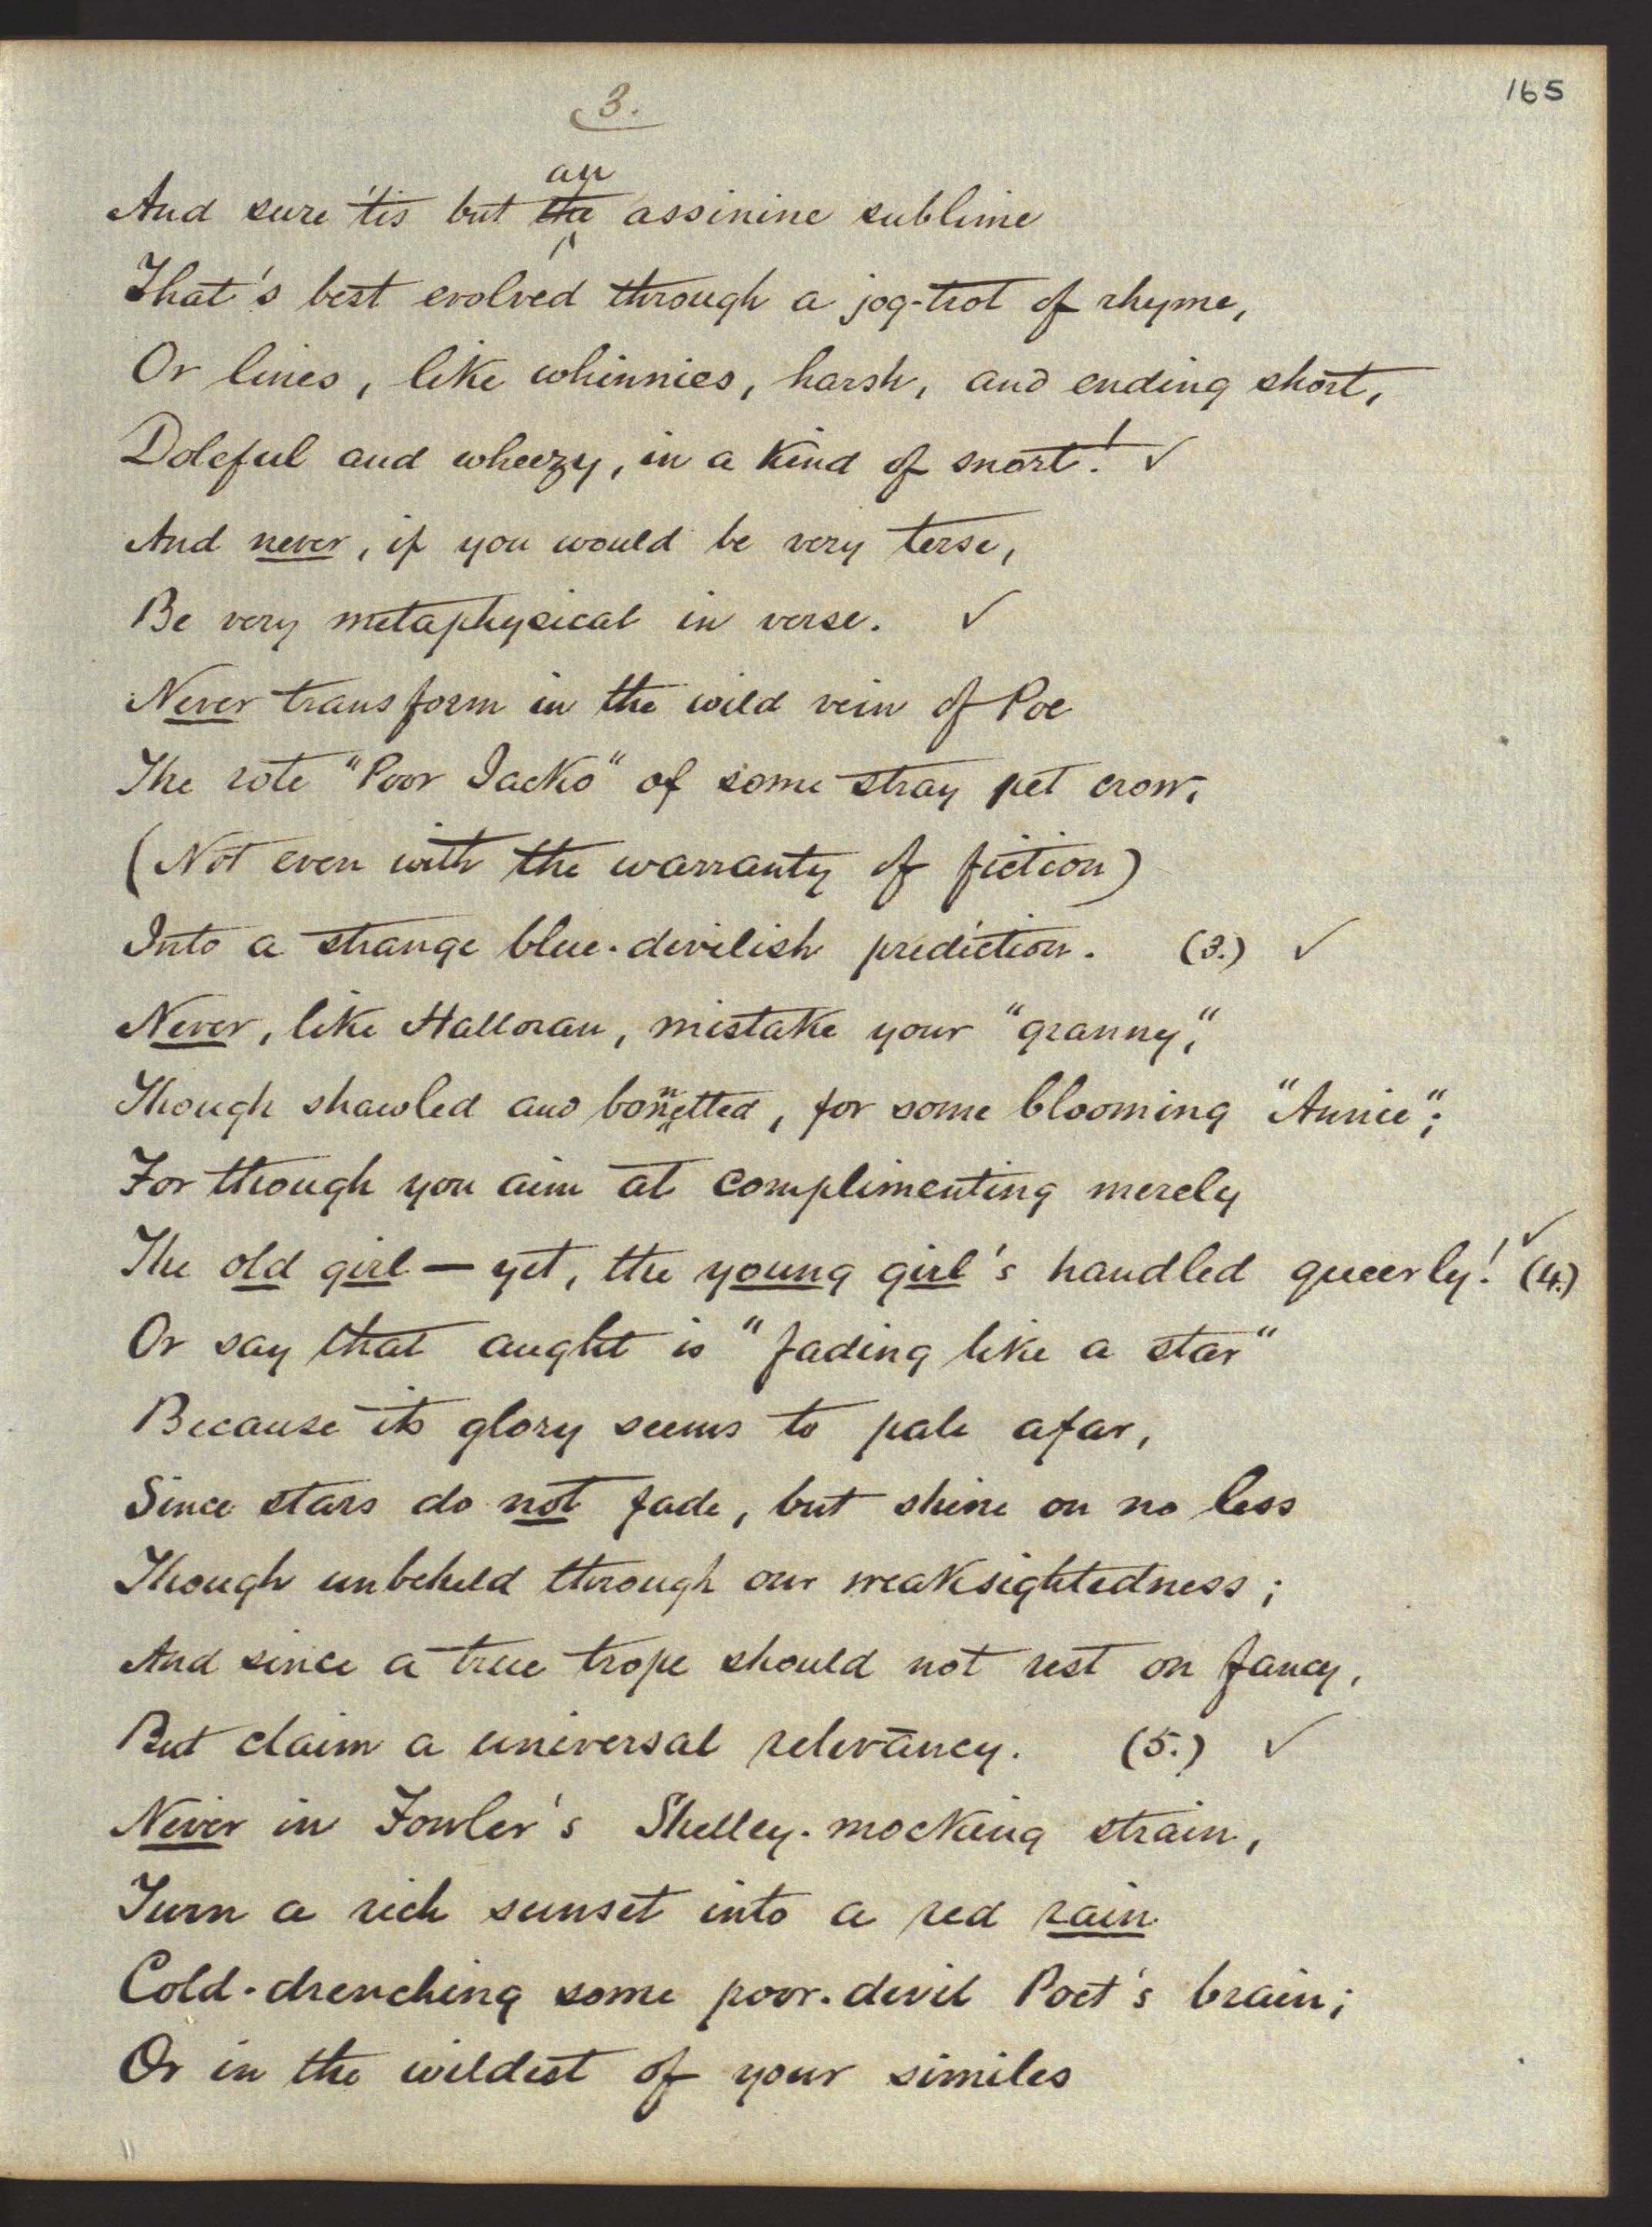 165
3.
an
And sure 'tis but the assinine sublime
That's best evolved through a jog-trot of rhyme,
Or lines, like whinnies, harsh, and ending short,
Doleful and wheezy, in a kind of snort! ✓
And never, if you would be very terse,
Be very metaphysical in verse. ✓
Never transform in the wild vein of Poe
The rote "Poor Jacko" of some stray pet crow,
(Not even with the warranty of fiction)
Into a strange blue-devilish prediction. (3.) ✓
Never, like Halloran, mistake your "granny",
Though shawled and bonnetted, for some blooming "Annie";
For though you aim at complimenting merely
The old girl — yet, the young girl's handled queerly! (4.) ✓
Or say that aught is "fading like a star"
Because its glory seems to pale afar,
Since stars do not fade, but shine on no less
Though unbeheld through our weaksightedness;
And since a true trope should not rest on fancy,
But claim a universal relevāncy. (5.) ✓
Never in Fowler's Shelley-mocking strain,
Turn a rich sunset into a red rain
Cold-drenching some poor-devil Poet's brain;
Or in the wildest of your similes